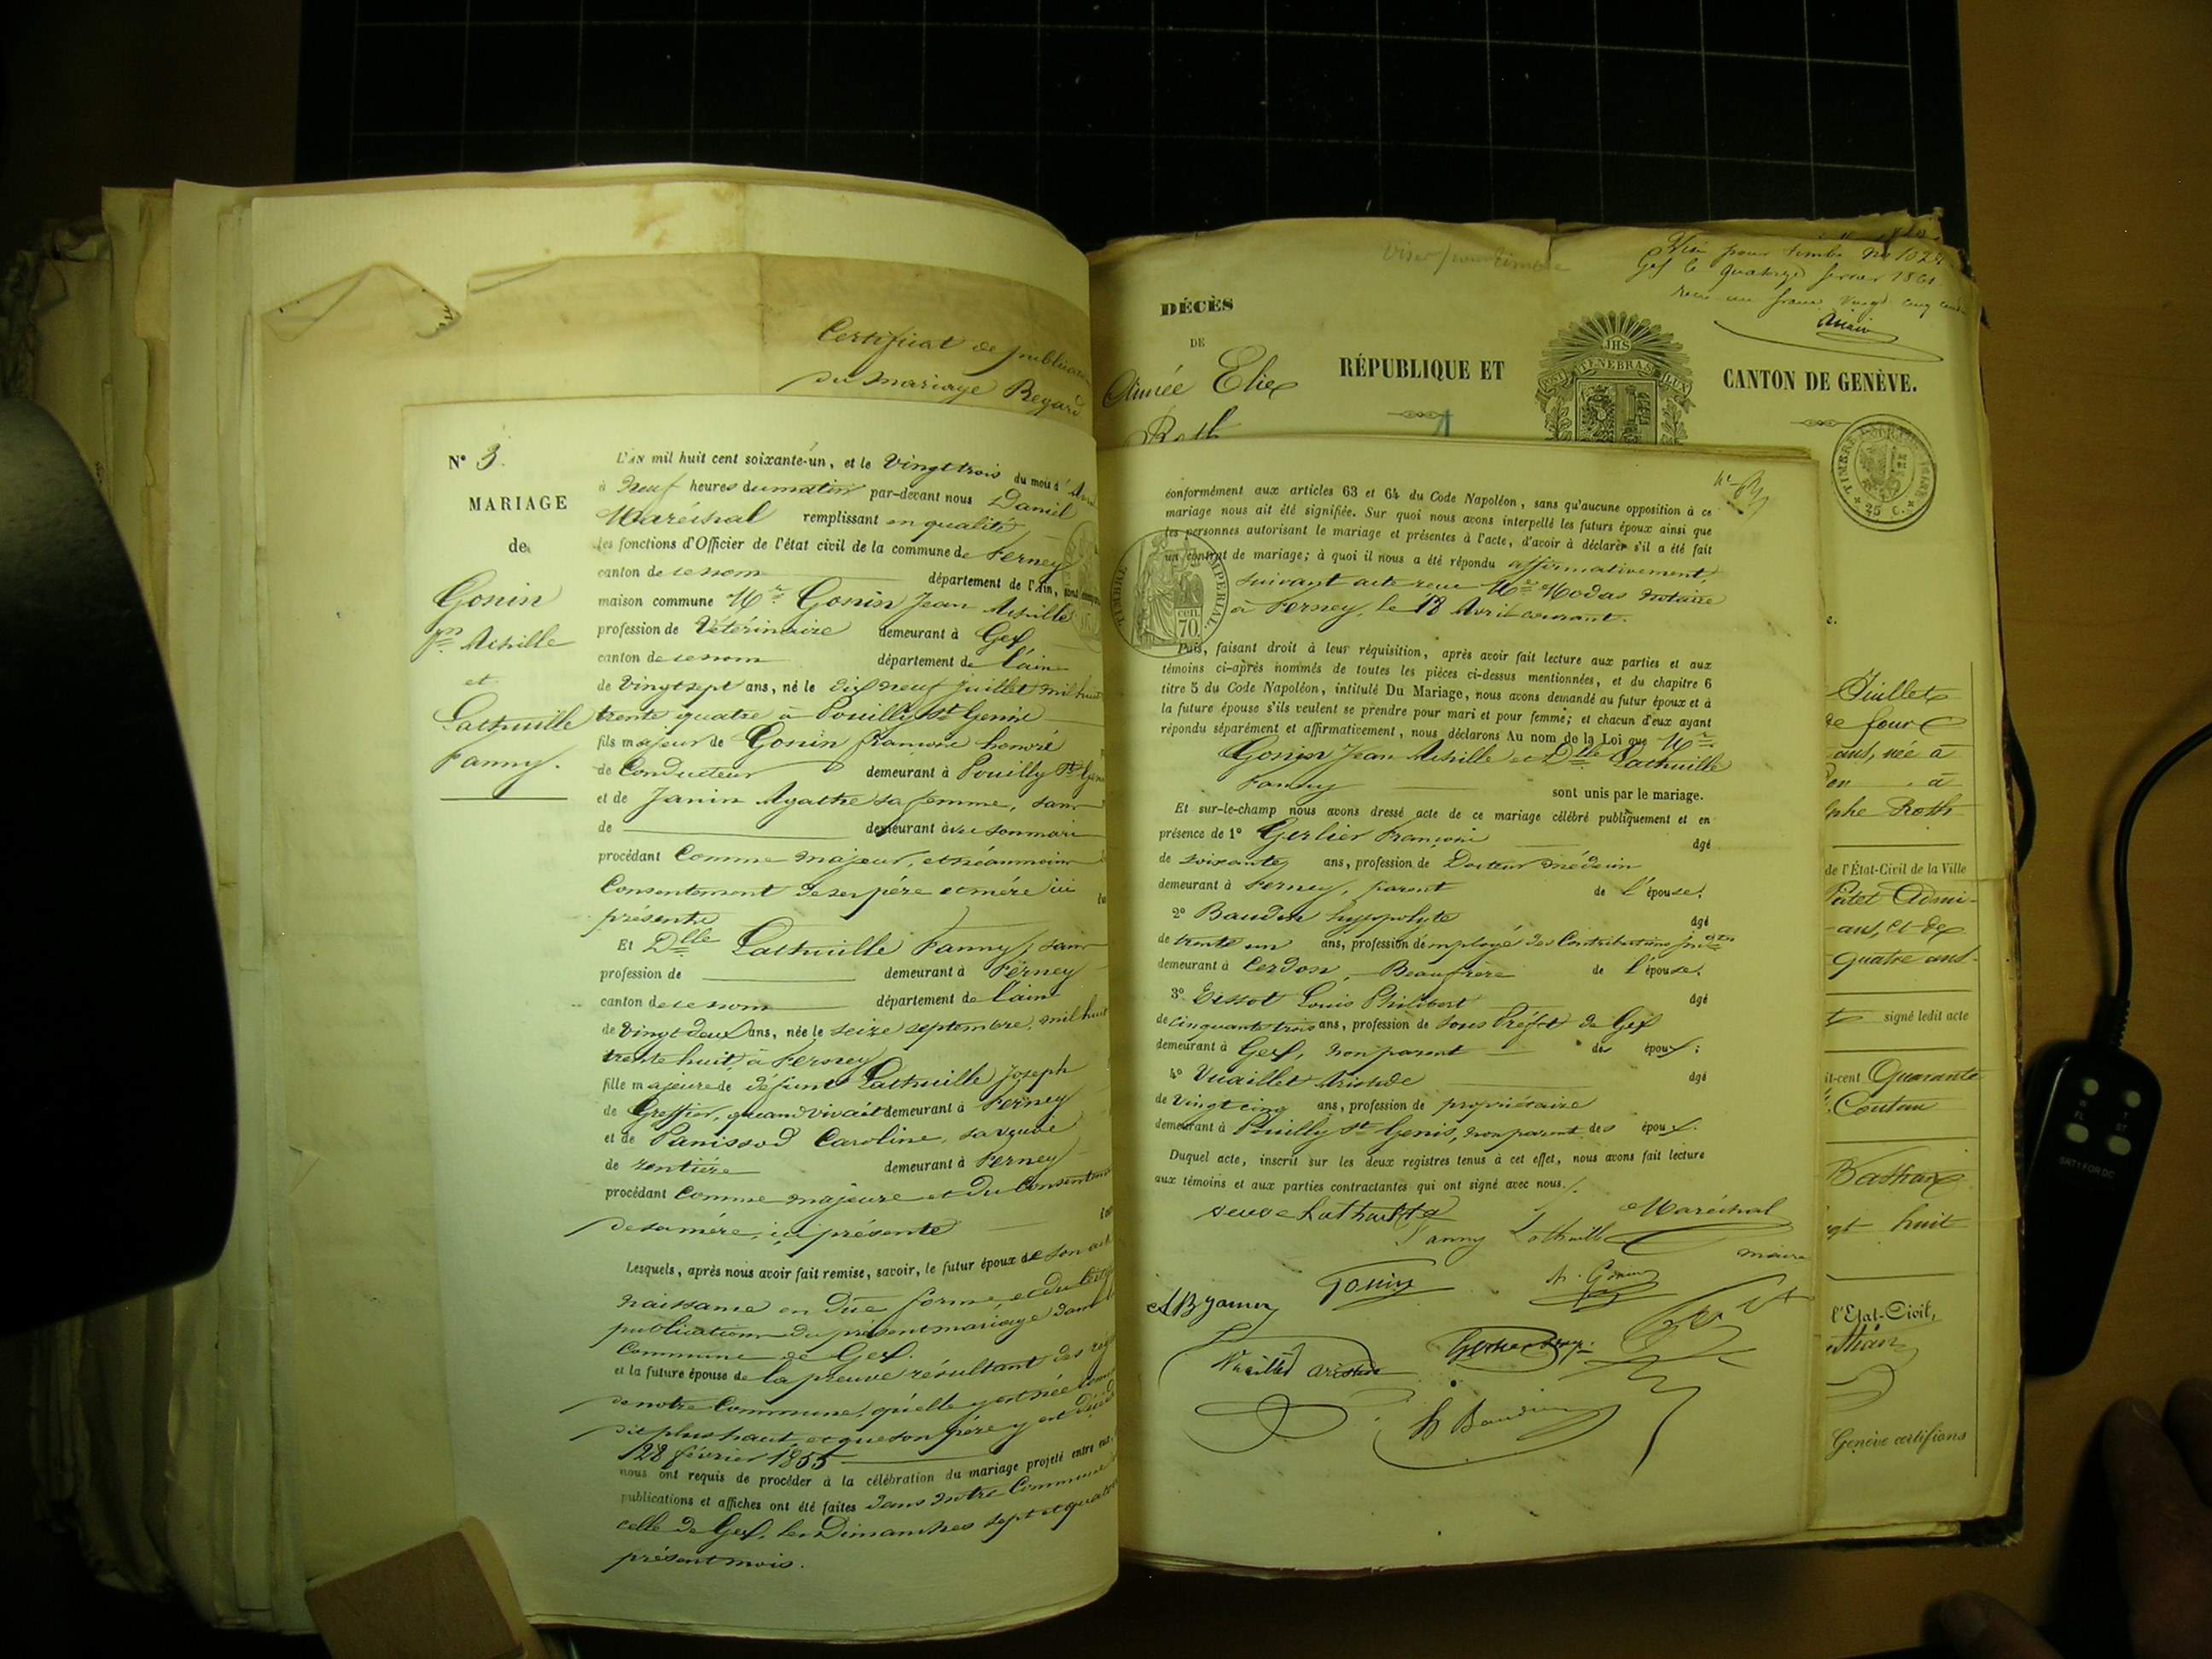 Certificat de public
du mariage Regard
N° 3.
MARIAGE
de
Gonin
Jn Achille
et
Lathuille
Fanny.
L'AN mil huit cent soixante-un, et le vingt trois du mois d'
à neuf heures du matin par-devant nous Daniel
Maréchal remplissant en qualité
les fonctions d'Officier de l'état civil de la commune de Ferney
canton de ce nom département de l'Ain,
maison commune Mr Gonin Jean Achille
profession de Vétérinaire demeurant à Gex
canton de ce nom département de l'ain
de vingt sept ans, né le dix neuf juillet mil huit
trente quatre à Pouilly St Genix
fils majeur de Gonin françois honoré
de Conducteur demeurant à Pouilly St Gen
et de Janin Agathe sa femme, sans
de demeurant avec son mari
procédant comme majeur, et néanmoins
Consentement de ses père et mère ici
présents
Et Dlle Lathuille Fanny, sans
profession de demeurant à Ferney
canton de ce nom département de l'ain
de vingt deux ans, née le seize septembre, mil huit
trente huit, à Ferney
fille majeure de défunt Lathuille Joseph
de Greffier, quand vivait demeurant à Ferney
et de Panissod Caroline, sa veuve
de rentière demeurant à Ferney
procédant comme majeure et du Consentem
de sa mère, ici présente
Lesquels, après nous avoir fait remise, savoir, le futur époux de son
naissance en due forme, et du
publications du présent mariage dans
Commune de Gex.
et la future épouse de la preuve résultant des
de notre Commune, qu'elle y est née
dit plus haut, et que son père y est
28 février 1855
nous ont requis de procéder à la célébration du mariage projeté entre eux,
publications et affiches ont été faites dans notre Commune
celle de Gex, les Dimanches sept et quat
présent mois.
viser pour timbre
Visé pour timbre
Gex le quatorze février 1861
reçu un franc vingt cinq
DÉCÈS
DE
Aimée Elise
Roth
RÉPUBLIQUE ET CANTON DE GENÈVE.
JHS
POST TENEBRAS LUX
25 C.
conformément aux articles 63 et 64 du Code Napoléon, sans qu'aucune opposition à ce
mariage nous ait été signifiée. Sur quoi nous avons interpellé les futurs époux ainsi que
les personnes autorisant le mariage et présentes à l'acte, d'avoir à déclarer s'il a été fait
un contrat de mariage; à quoi il nous a été répondu affirmativement,
suivant acte reçu Me Modas notaire
à Ferney, le 18 Avril courant.
TIMBRE IMPERIAL
70. cen
Puis, faisant droit à leur réquisition, après avoir fait lecture aux parties et aux
témoins ci-après nommés de toutes les pièces ci-dessus mentionnées, et du chapitre 6
titre 5 du Code Napoléon, intitulé Du Mariage, nous avons demandé au futur époux et à
la future épouse s'ils veulent se prendre pour mari et pour femme; et chacun d'eux ayant
répondu séparément et affirmativement, nous déclarons Au nom de la Loi que Mr
Gonin Jean Achille et Dlle Lathuille
Fanny sont unis par le mariage.
Et sur-le-champ nous avons dressé acte de ce mariage célébré publiquement et en
présence de 1° Gerlier François âgé
de soixante ans, profession de Docteur médecin
demeurant à Ferney, parent de l'épouse.
2° Baudin hyppolyte âgé
de trente un ans, profession d'employé des Contributions
demeurant à Cerdon, Beaufrère de l'épouse.
3° Tissot Louis Philibert âgé
de cinquante trois ans, profession de sous Préfet de Gex
demeurant à Gex, non parent des époux;
4° Vuaillet Aristide âgé
de vingt cinq ans, profession de propriétaire
demeurant à Pouilly St Genis, non parent des époux.
Duquel acte, inscrit sur les deux registres tenus à cet effet, nous avons fait lecture
aux témoins et aux parties contractantes qui ont signé avec nous.
Maréchal
maire
Fanny Lathuille
Gonin
Vuaillet aristide
h Baudin
Juillet
de jour
ans, née à
à
phe Roth
de l'État-Civil de la Ville
Patet Admi-
ans, et de
quatre ans
signé ledit acte
it-cent Quarante
Coutau
huit
l'Etat-Civil,
Genève certifions